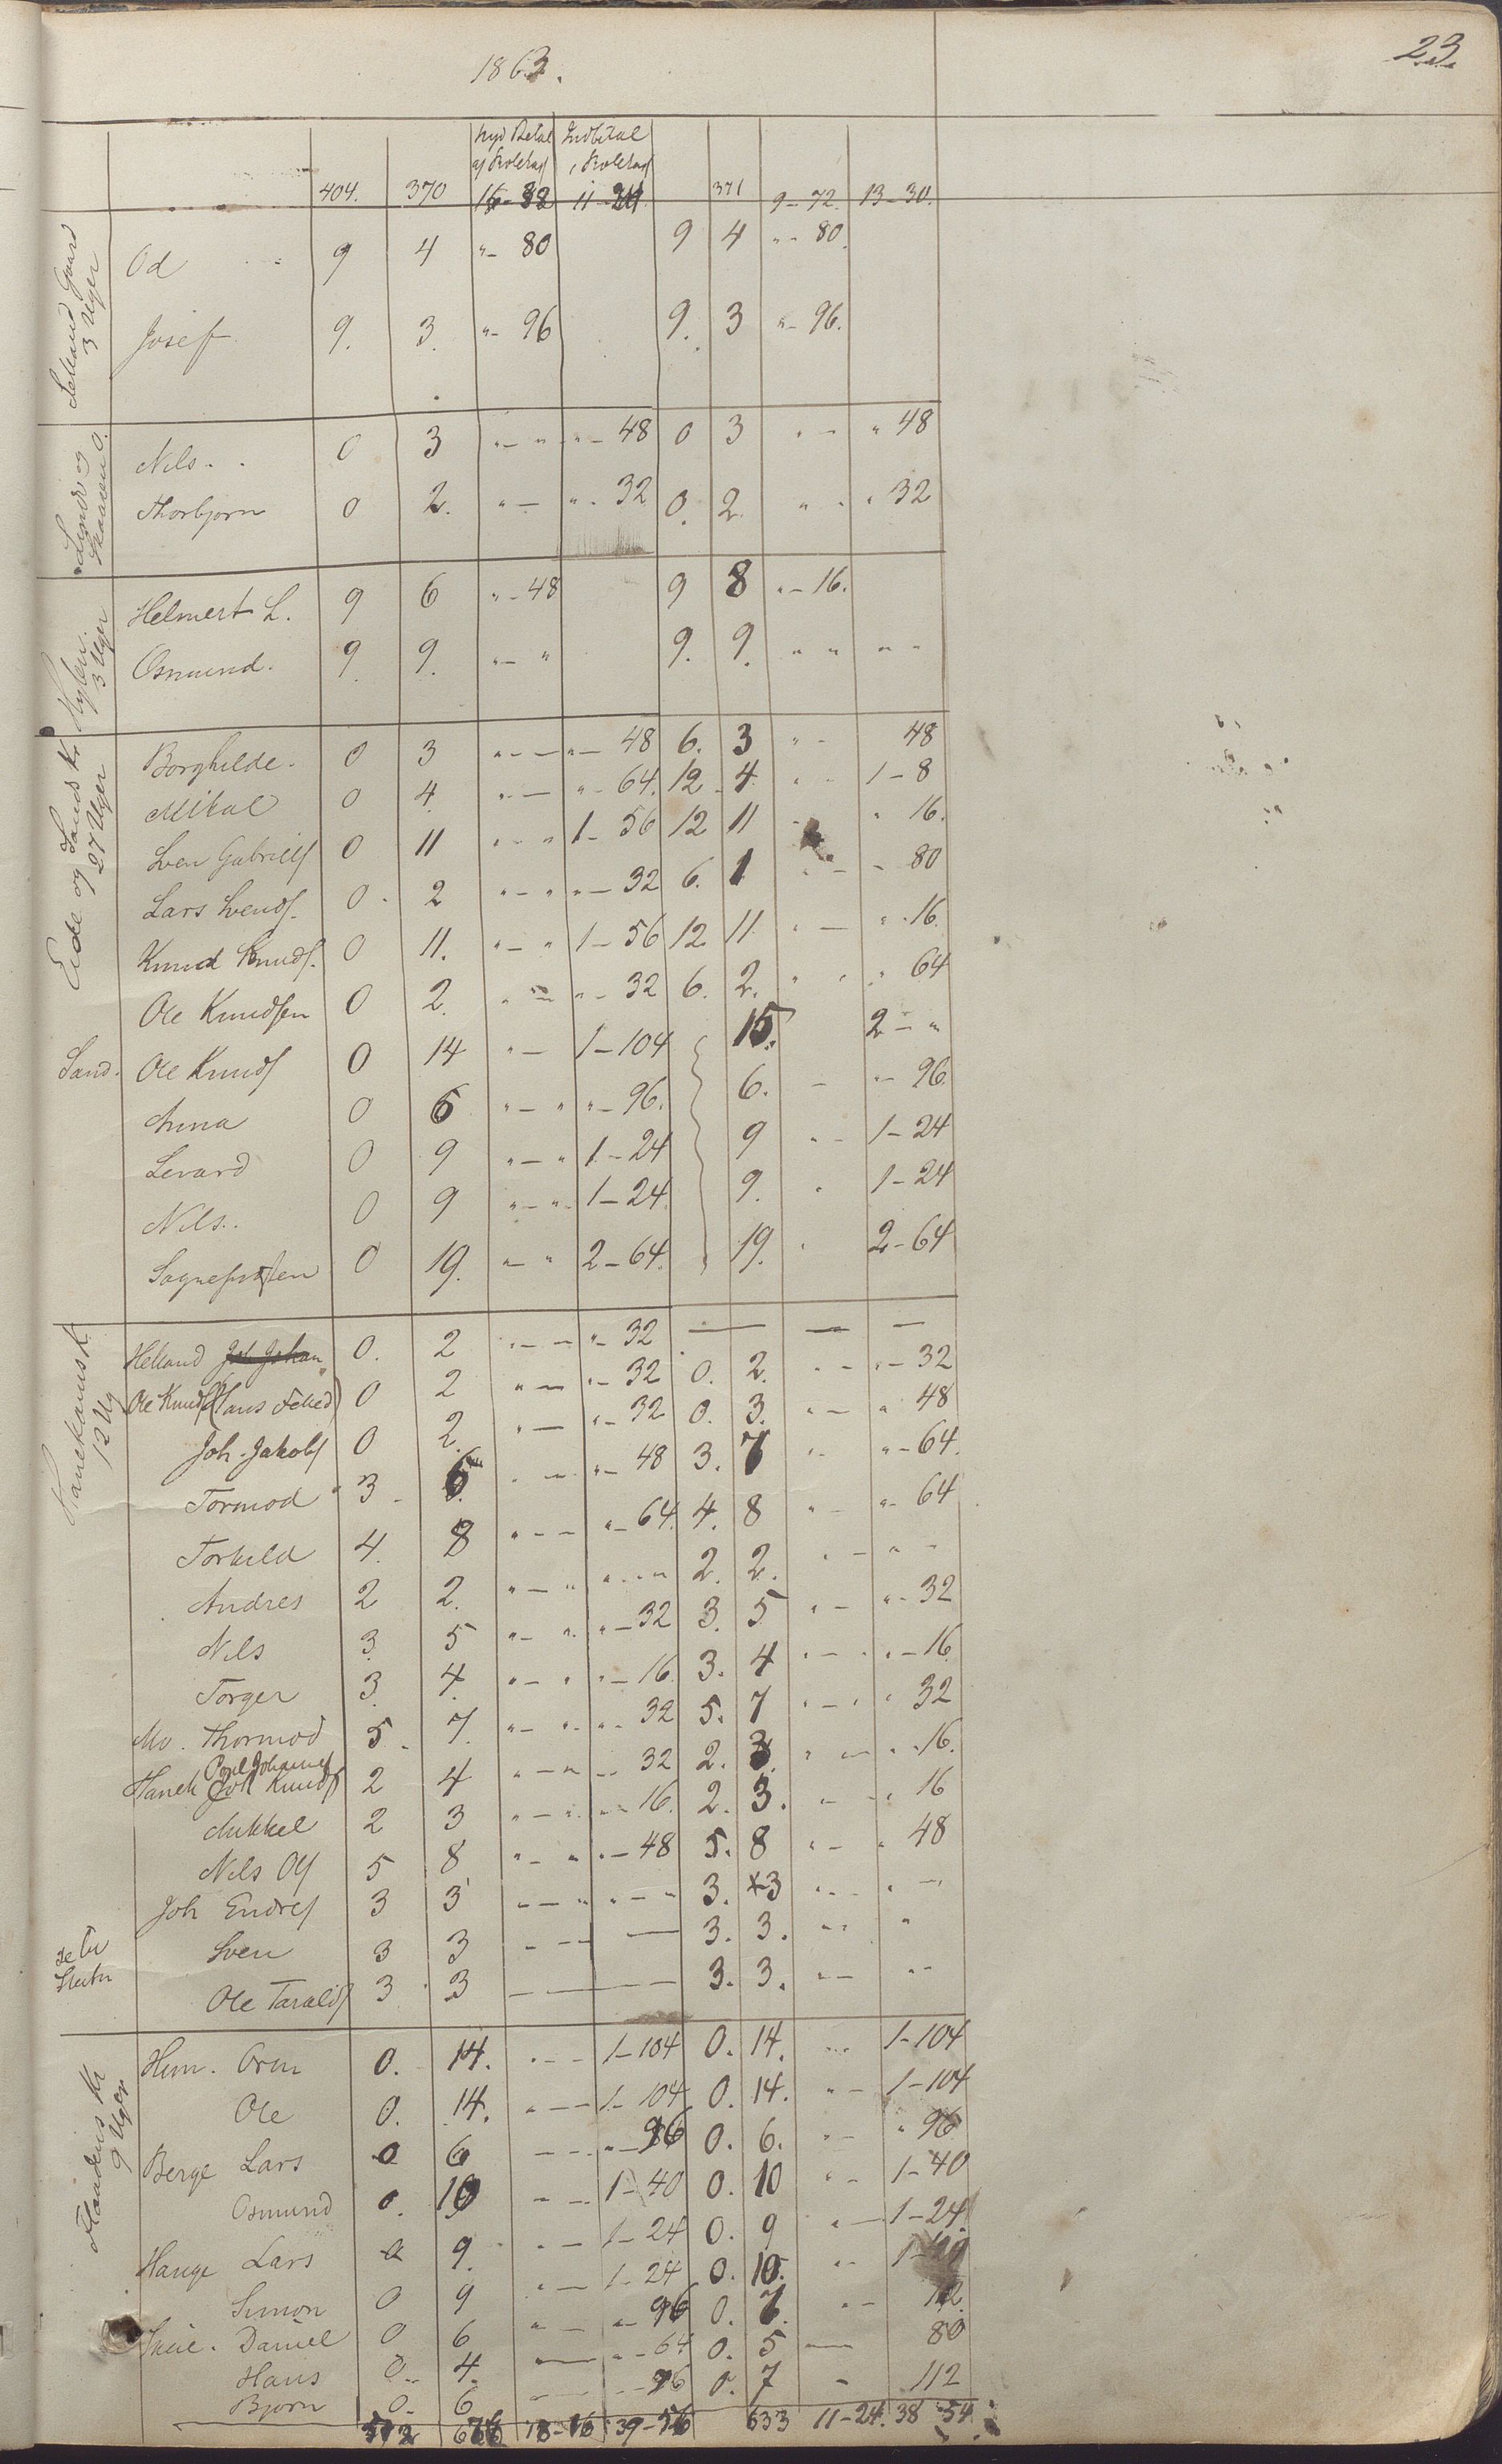 23.
1863.
nyd Betal Indbetal
af Skolekas i Skolekas
404. 370 16-32 11-24 371 9-72. 13-30.
Gaard
3 Uger
Od 9 4 "- 80 9 4 "- 80.
Josef 9. 3. "- 96 9. 3 "- 96.
Lunde og
Nils 0 3 "- " "- 48 0 3 " - " 48
Thorbjorn 0 2. "- "- 32 0. 2. " " 32
Hylen.
3 Uger
Helmert L. 9 6 "- 48 9 8 "- 16.
Osmund. 9 9. "- " 9. 9. " " " "
Eide og Sands Kr
27 Uger
Borghilde. 0 3 "- "- 48 6. 3 "- 48
Mikal 0 4. "- "- 64. 12 4 " 1-8
Sven Gabriels 0 11 "- " 1-56 12 11 " 16.
Lars Svends. 0 2 "- " "- 32 6. 1 "- " 80
Knud Knuds. 0 11. "- " 1-56 12 11 "- " 16.
Ole Knudsen 0 2. "- "- 32 6. 2. " " " 64
Sand. Ole Knuds 0 14 "- 1-104 15. 2 - "
Anna 0 6 "- " "- 96. 6. - "- 96.
Sevard 0 9 "- " 1-24 9 "- 1-24
Nils. 0 9 "- " 1-24 9. " 1-24
Sognepresten 0 19. "- " 2-64. 19. " 2-64
12 Ug
Helland 0. 2 "- - "- 32 — — —
Ole Knuds (Hans Felled) 0 2 "- "- 32 0. 2. "- "- 32
Joh. Jakobs 0 2. "- "- 32 0. 3. "- " 48
Tormod 3 6 "- "- 48 3. 7 "- "- 64.
Torkild 4. 8 "- - "- 64. 4. 8 "- "- 64
Andres 2 2. "- " " - " 2. 2. "- " -
Nils 3. 5 "- " "- 32 3. 5 "- "- 32
Torger 3. 4. "- " "- 16. 3. 4 "- " "- 16.
Mo. Thormod 5 7. "- " "- 32 5. 7 "- " " 32
Poul Johannes
Hanek Joh Knuds 2 4 "- " - 32 2. 3. "- " 16.
Mikkel 2 3 "- " "- 16. 2. 3. "- " 16
Nils Ols 5 8 "- " "- 48 5. 8 "- " 48
Joh Endres 3 3 "- " "- " 3. 3 "- " -
Sven 3 3 - - — 3. 3. "- "
Ole Taralds 3 3 — — 3. 3. "- "
9 Uger
Hum. Orm 0. 14. "- - 1-104 0. 14. "- 1-104
Ole 0. 14. "- - 1-104 0. 14. "- 1-104
Berge Lars 0 6 - - "- 96 0. 6. "- " 96
Osmund 0. 10 "- - 1-40 0. 10 "- 1-40
Hauge Lars 0 9. "- - 1-24 0. 9 "- 1-24
Simon 0 9 "- 1-24 0. 10. "-
Daniel 0 6 "- "- 96 0. 7. "- 112.
Hans 0. 4. — "- 64 0. 5 — 80
Bjorn 0. 6 — 96 0. 7 - 112
39-56 633 11-24. 38-54